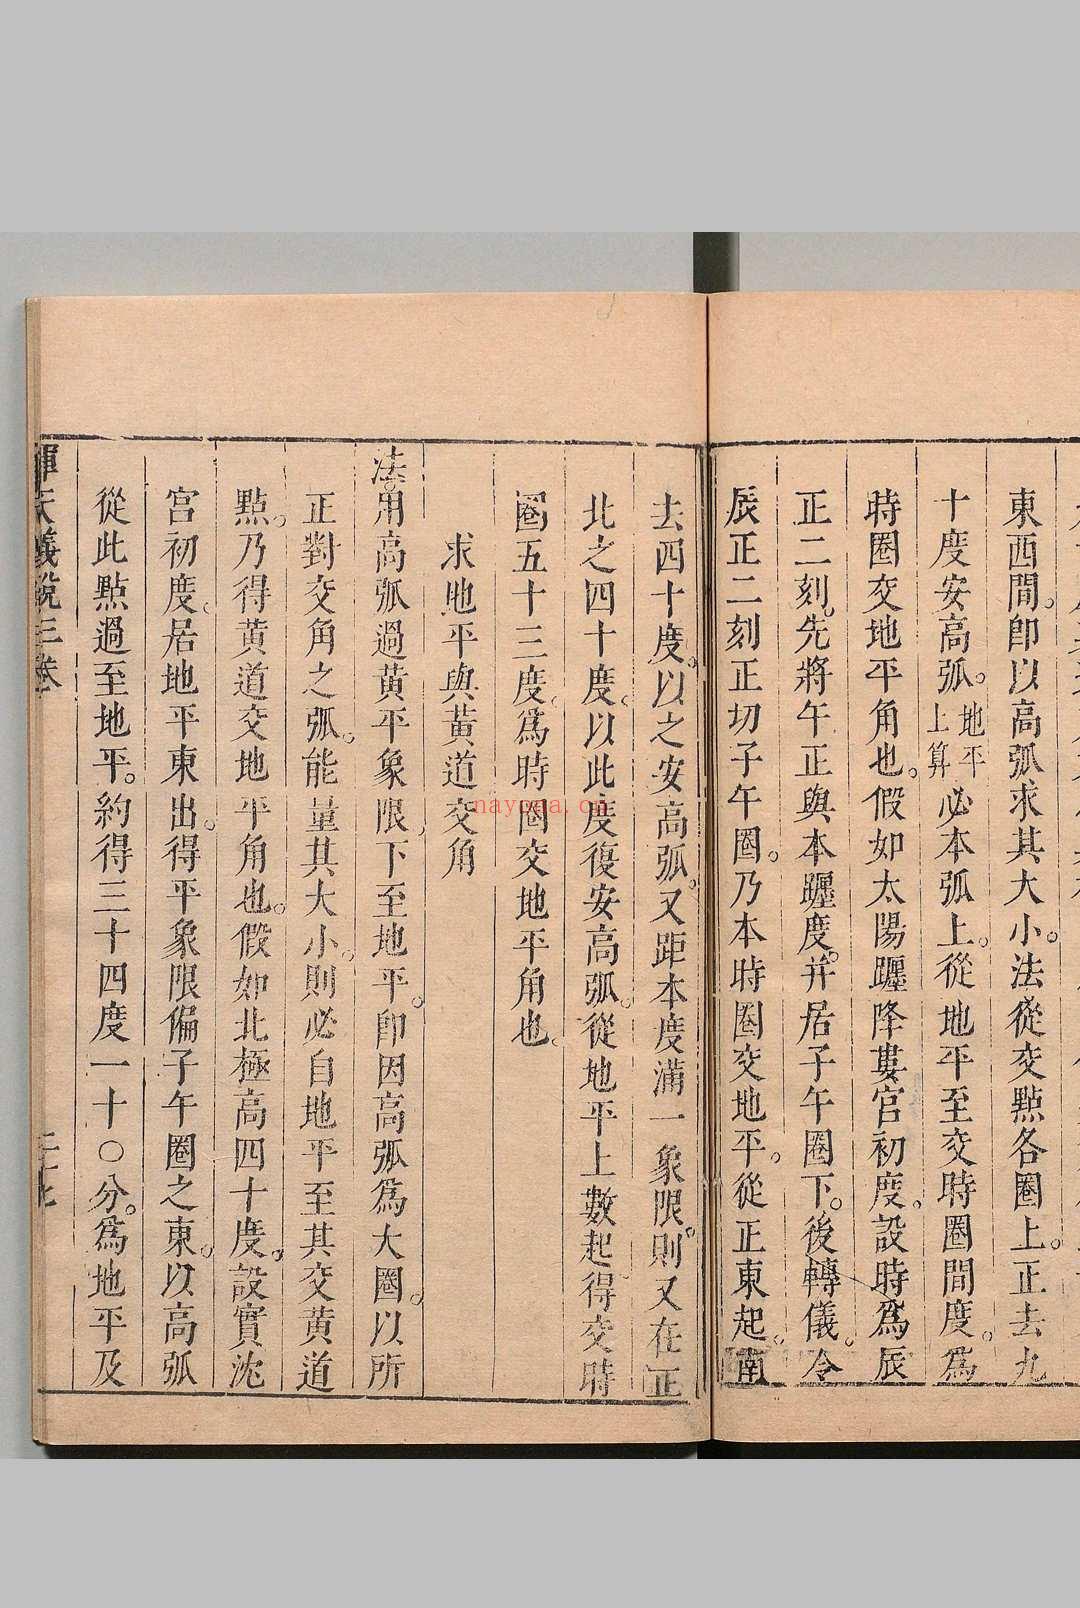 東西間。卽以高弧求其大小。法從交點各圈上。正去九
十度安高弧。地平上算必本弧上。從地平至交時圈間度。爲
時圈交地平角也。假如太陽躔降婁宮初度。設時爲辰
正二刻。先將午正與本躔度。幷居子午圈下。後轉儀。令
辰正二刻正切子午圈。乃本時圈交地平。從正東起。南
去四十度。以之安高弧。又距本度滿一象限。則又在正
北之四十度。以此度復安高弧。從地平上數起。得交時
圈五十三度。爲時圈交地平角也。
求地平與黃道交角
法用高弧過黃平象限。下至地平。卽因高弧爲大圈。以所
正對交角之弧。能量其大小。則必自地平至其交黃道
點。乃得黃道交地平角也。假如北極高四十度。設實沈
宮初度。居地平東出。得平象限偏子午圈之東。以高弧
從此點過至地平。約得三十四度一十〇分。爲地平及
渾天儀說三卷
nayona.cn